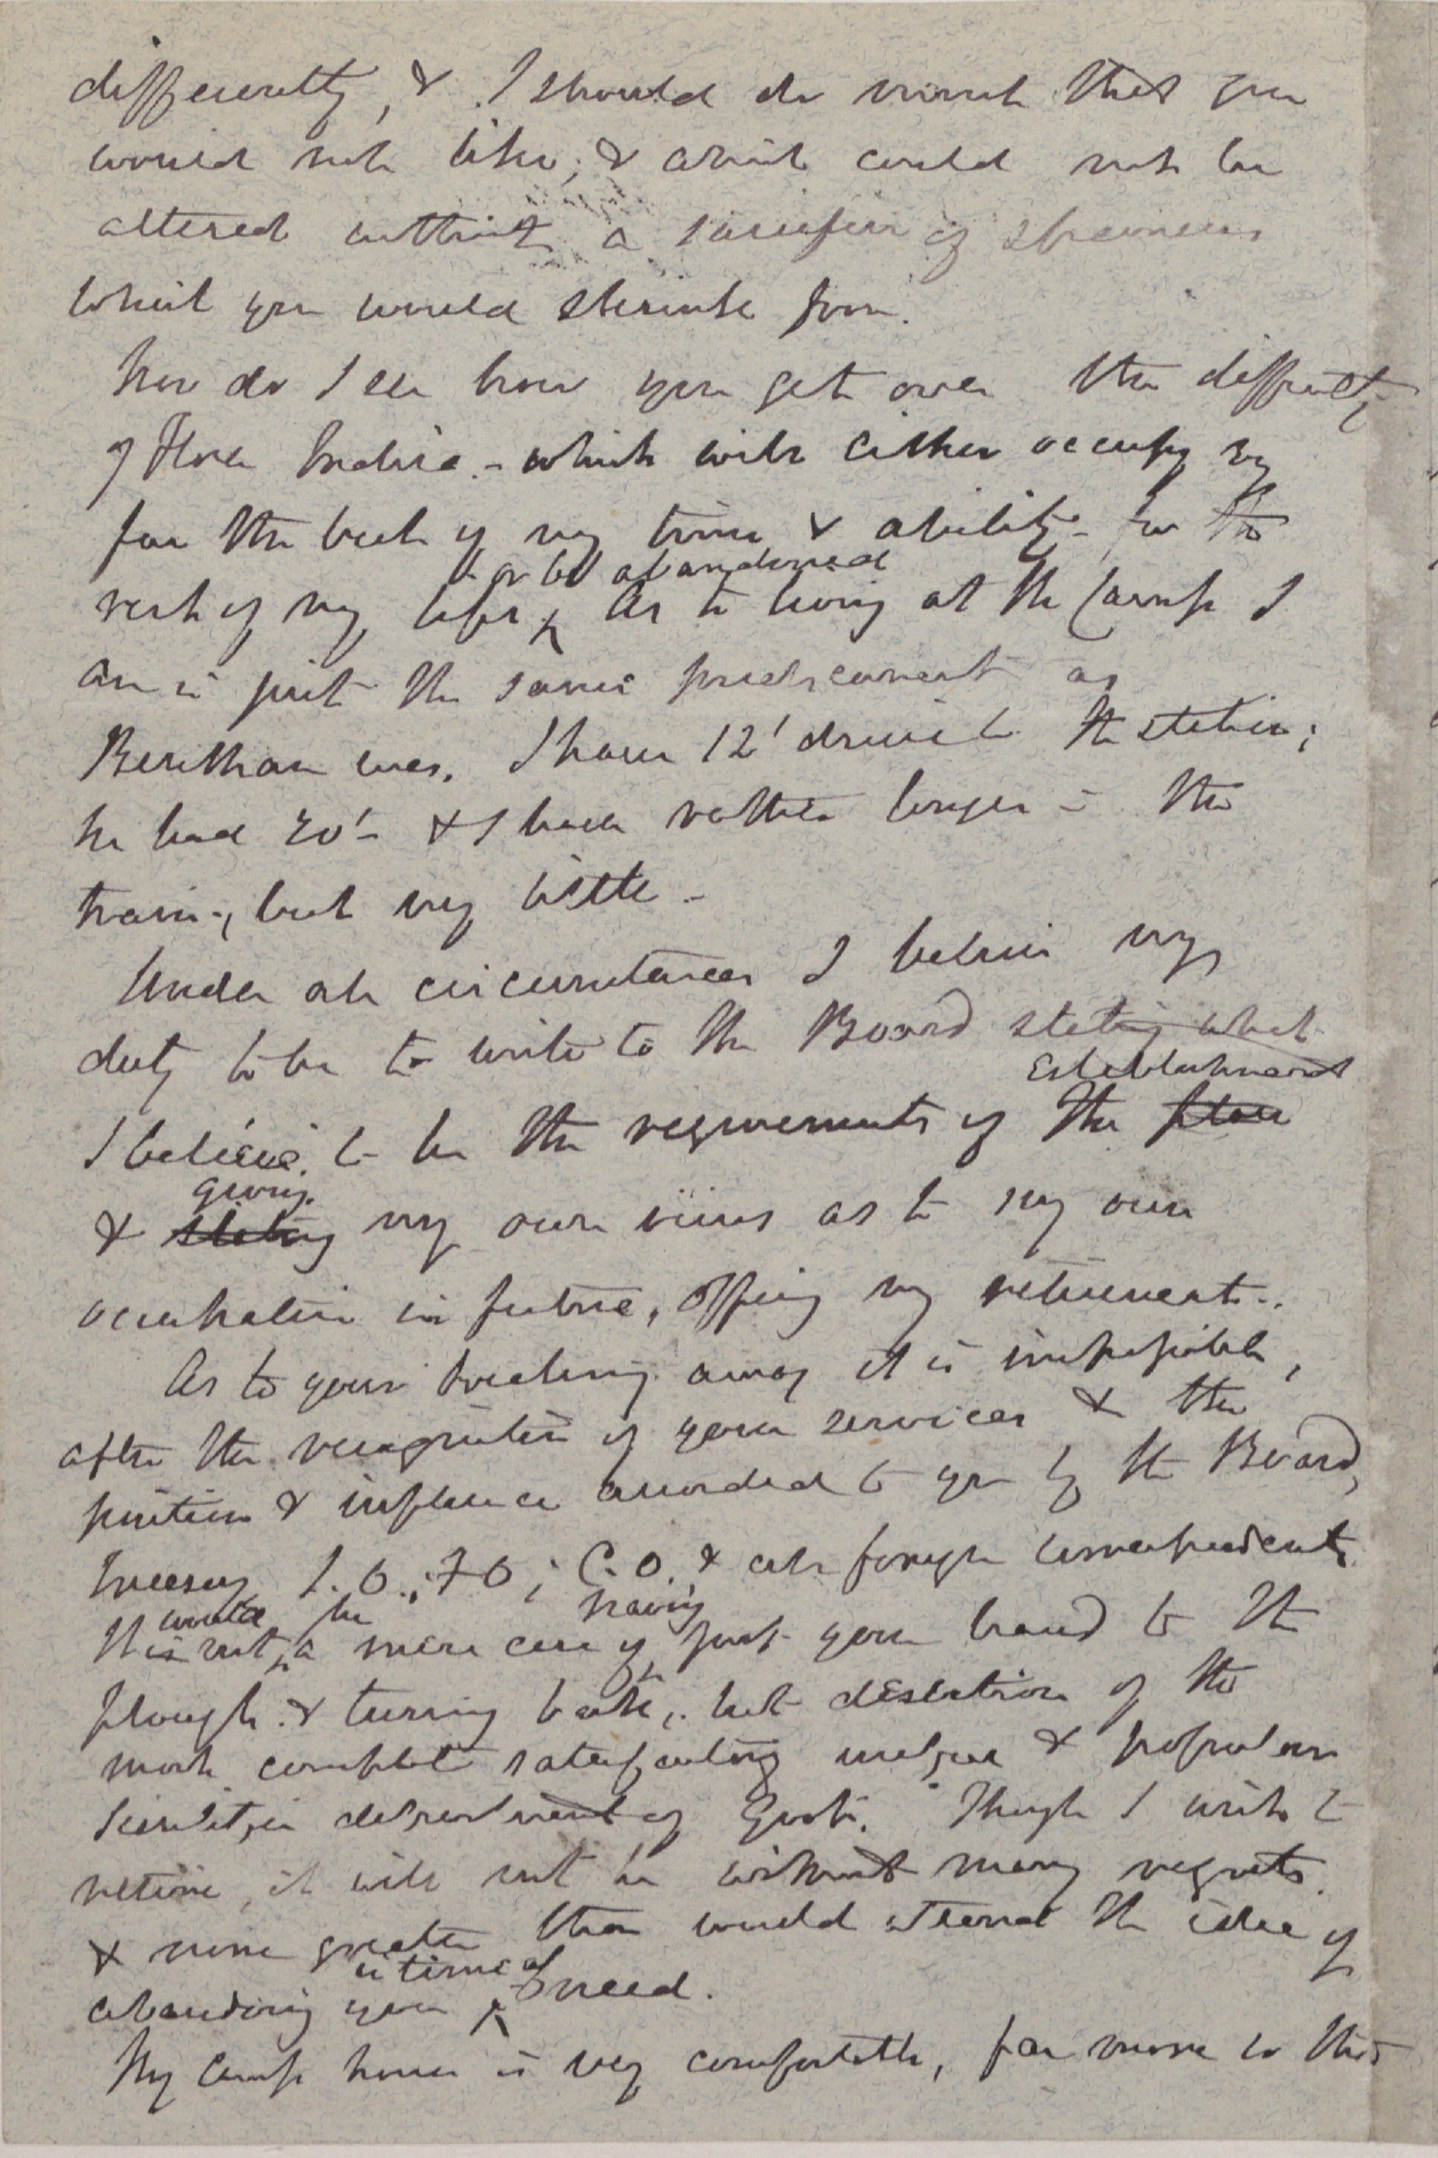 differently, & I should do much that you
would not like; & which could not be
altered without a sacrifice of
which you would shrink from.
Nor do I see how you get over the difficulty
of Flora Indica - which will either occupy by
far the best of my time & ability for the
rest of my life, or be abandoned. As to living at the Camp I
am in just the same predicament as
Bentham was. I have 12' drive to the station;
he had 20' - & I have rather longer in the
train, but very little -
Under all circumstances I believe my
duty to be to write to the Board stating what
I believe to be the requirements of the place Establishment
& stating giving my own views as to my own
occupation in future, offering my retirement.
As to your breaking away it is impossible,
after the recognition of your services & the
position & influence accorded to you by the Board,
Treasury, I.O.; F.O; C.O. & all foreign correspondents.
It is would not be a mere case of having put your hand to the
plough & turning back, but desertion of the
most complete satisfactory unique & popular
Scientific department of Govt. Though I wish to
retire, it will not be without many regrets
& none greater than would attend the idea of
abandoning you in time of need.
My Camp house is very comfortable, far more so than